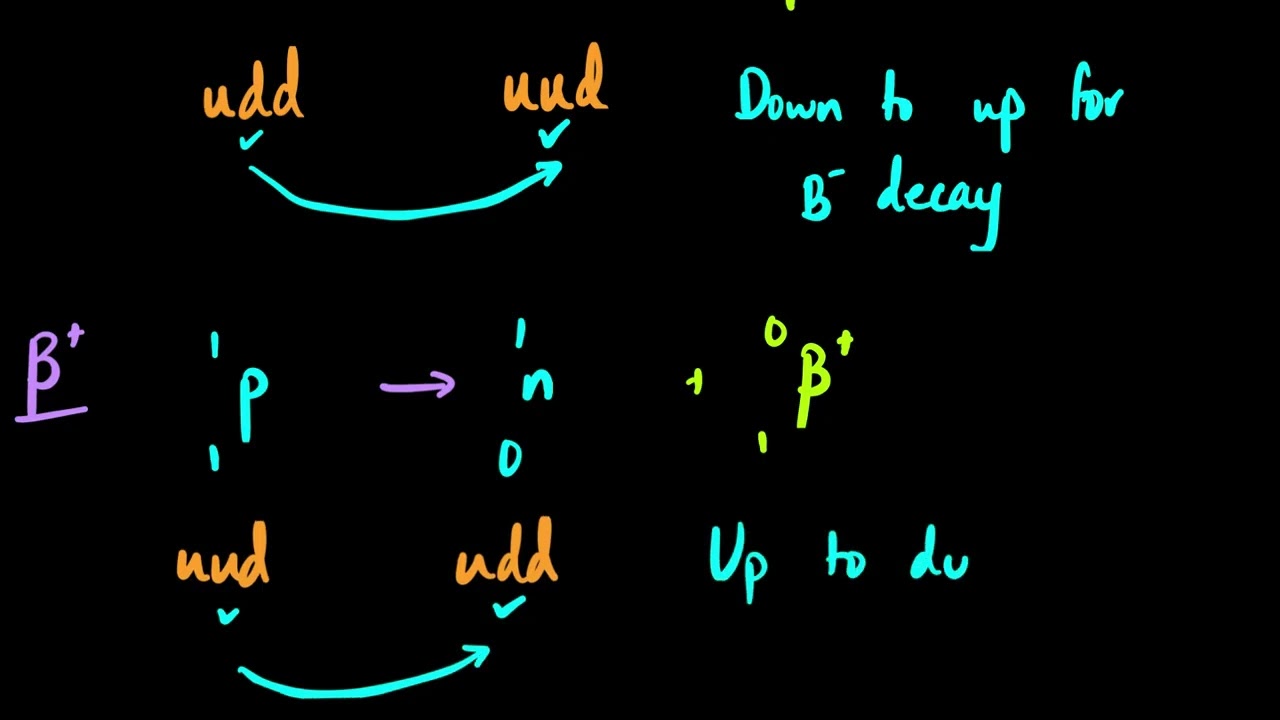 udd uud Down to up for
β⁻ decay
β⁺ ¹₁p → ¹₀n + ⁰₁β⁺
uud udd Up to du